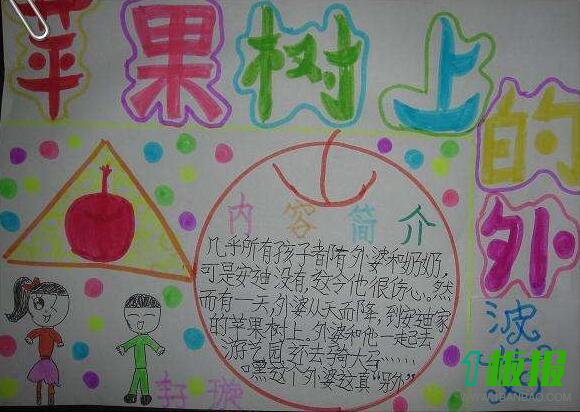 苹果树上
的
外
婆
内容简介
几乎所有孩子都有外婆和奶奶,
可是安迪没有,这令他很伤心。然
而有一天,外婆从天而降,到安迪家
的苹果树上。外婆和他一起去
游乐园,还去骑大马……
嘿这个外婆这真
轩璇
WWW.1BANBAO.COM